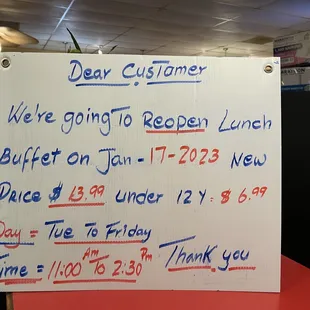 Dear CusTamer
We're going To Reopen Lunch
Buffet on Jan - 17-2023 New
Price $ 13.99 under 12 Y: $ 6.99
Day = Tue To Friday
Time = 11:00 Am To 2:30 Pm Thank you